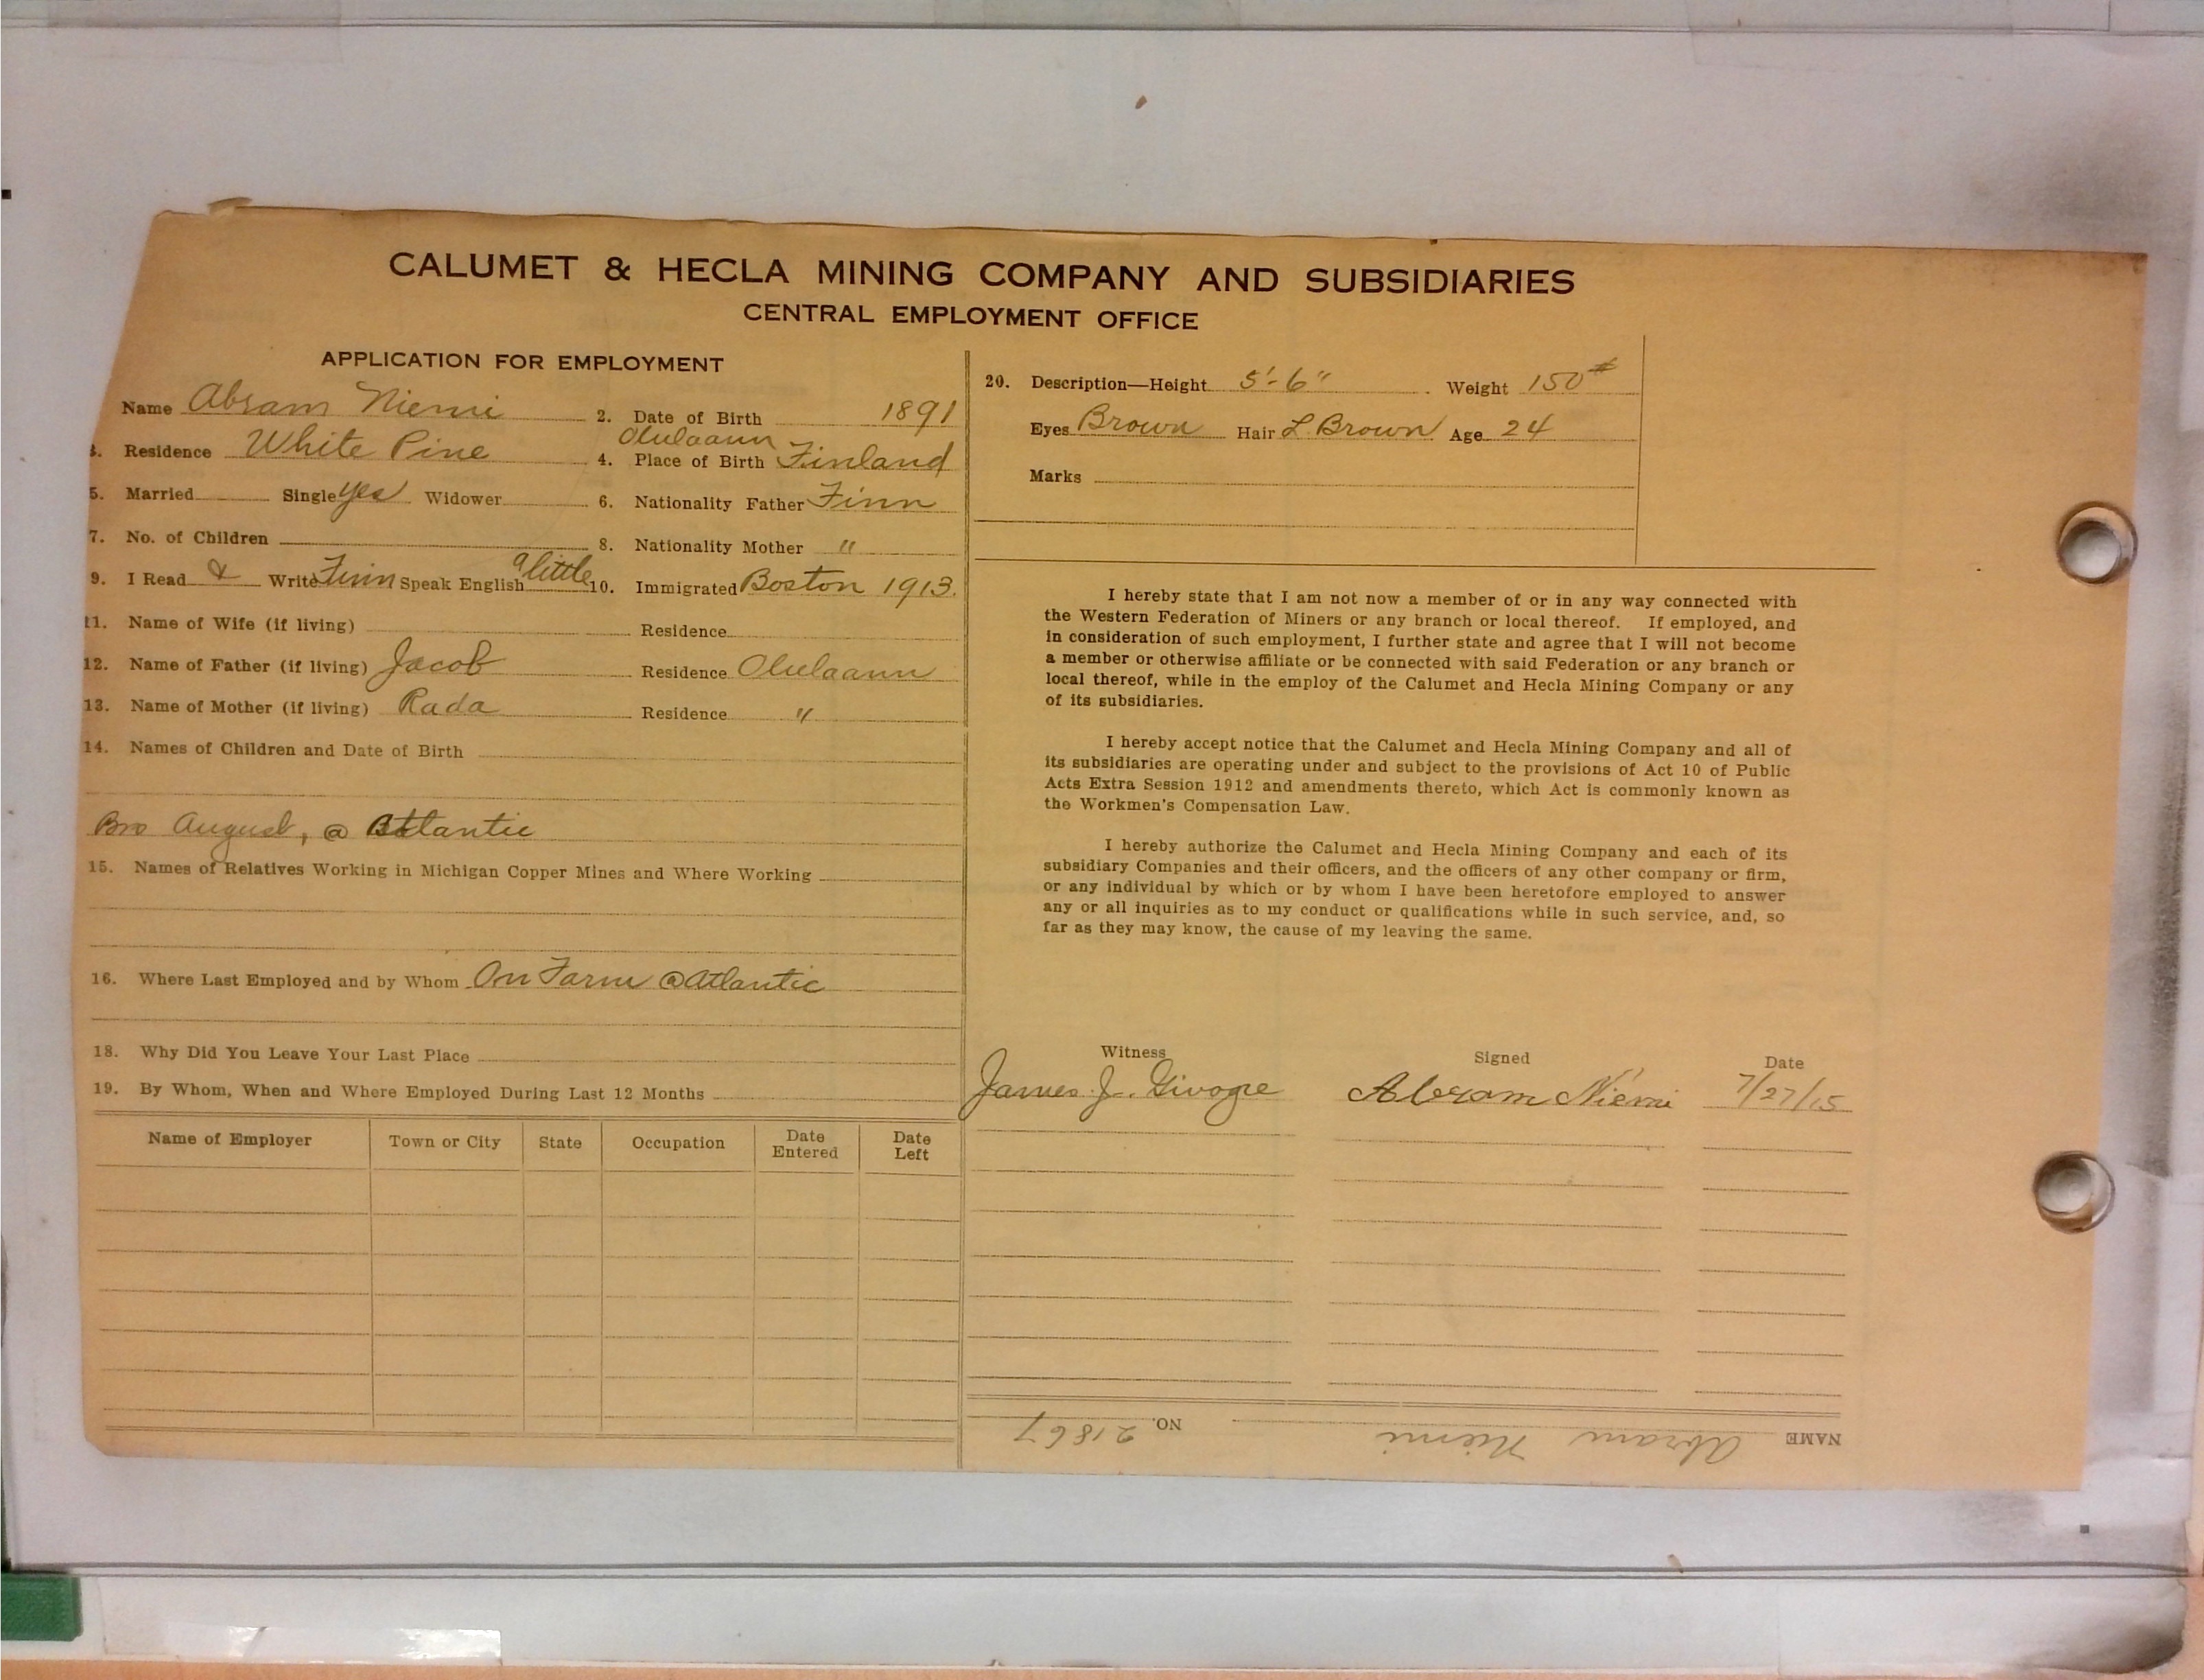 CALUMET & HECLA MINING COMPANY AND SUBSIDIARIES
CENTRAL EMPLOYMENT OFFICE
APPLICATION FOR EMPLOYMENT
Name Abram Niemi 2. Date of Birth 1891
3. Residence White Pine 4. Place of Birth Olulaann Finland
5. Married Single yes Widower 6. Nationality Father Finn
7. No. of Children 8. Nationality Mother "
9. I Read & Write Finn Speak English a little 10. Immigrated Boston 1913.
11. Name of Wife (if living) Residence
12. Name of Father (if living) Jacob Residence Olulaann
13. Name of Mother (if living) Rada Residence "
14. Names of Children and Date of Birth
Bro August, @ Atlantic
15. Names of Relatives Working in Michigan Copper Mines and Where Working
16. Where Last Employed and by Whom On Farm @ Atlantic
18. Why Did You Leave Your Last Place
19. By Whom, When and Where Employed During Last 12 Months
Name of Employer Town or City State Occupation Date Entered Date Left
20. Description—Height 5'-6" Weight 150#
Eyes Brown Hair L. Brown Age 24
Marks
I hereby state that I am not now a member of or in any way connected with
the Western Federation of Miners or any branch or local thereof. If employed, and
in consideration of such employment, I further state and agree that I will not become
a member or otherwise affiliate or be connected with said Federation or any branch or
local thereof, while in the employ of the Calumet and Hecla Mining Company or any
of its subsidiaries.
I hereby accept notice that the Calumet and Hecla Mining Company and all of
its subsidiaries are operating under and subject to the provisions of Act 10 of Public
Acts Extra Session 1912 and amendments thereto, which Act is commonly known as
the Workmen's Compensation Law.
I hereby authorize the Calumet and Hecla Mining Company and each of its
subsidiary Companies and their officers, and the officers of any other company or firm,
or any individual by which or by whom I have been heretofore employed to answer
any or all inquiries as to my conduct or qualifications while in such service, and, so
far as they may know, the cause of my leaving the same.
Witness Signed Date
James J. Abram Niemi 7/27/15
NAME Abram Niemi NO. 21867